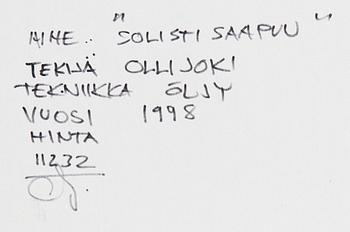 AIHE.. "SOLISTI SAAPUU"
TEKIJÄ OLLI JOKI
TEKNIIKKA ÖLJY
VUOSI 1998
HINTA
11232
OJ.